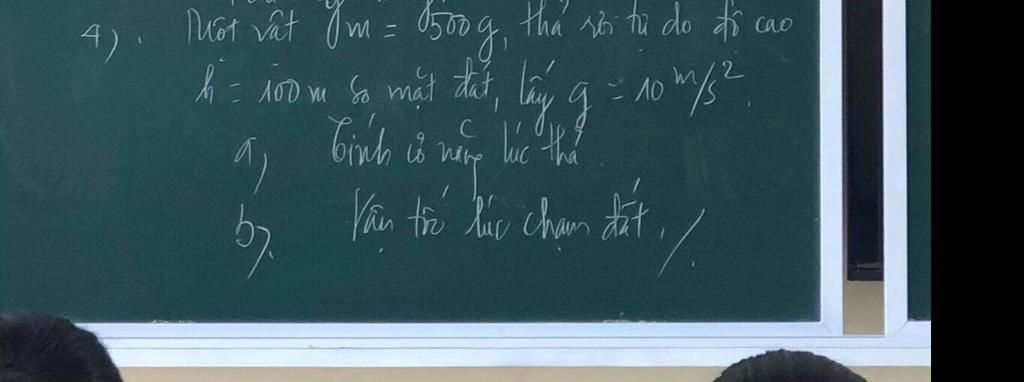 4). Một vật m = 500g, thả rơi tự do độ cao
h = 100m so mặt đất, lấy g = 10 m/s².
a, Tính cơ năng lúc thả.
b). Vận tốc lúc chạm đất./.